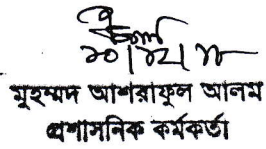 মুহম্মদ আশরাফুল আলম
প্রশাসনিক কর্মকর্তা